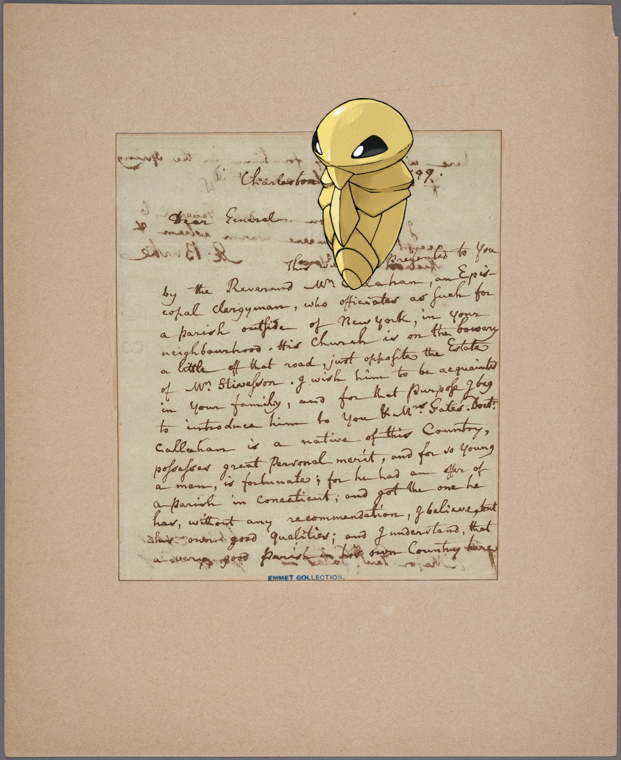 Charleston 99.
Dear General.
This Presented to You
by the Reverend Mr. Callahan, an Epis-
copal Clergyman, who officiates as such for
a parish outside of New York, in Your
neighbourhood. His Church is on the bowery
a little off that road, just opposite the Estate
of Mr. Stivesson. I wish him to be acquainted
in Your family, and for that purpose I beg
to introduce him to You & Mrs. Gates. Doctr.
Callahan is a native of this Country,
possesses great Personal merit, and for so Young
a man, is fortunate; for he had an offer of
a parish in Conecticut; and got the one he
has, without any recommendation, I believe, but
his own good qualities; and I understand, that
a very good Parish in his own Country here
EMMET COLLECTION.